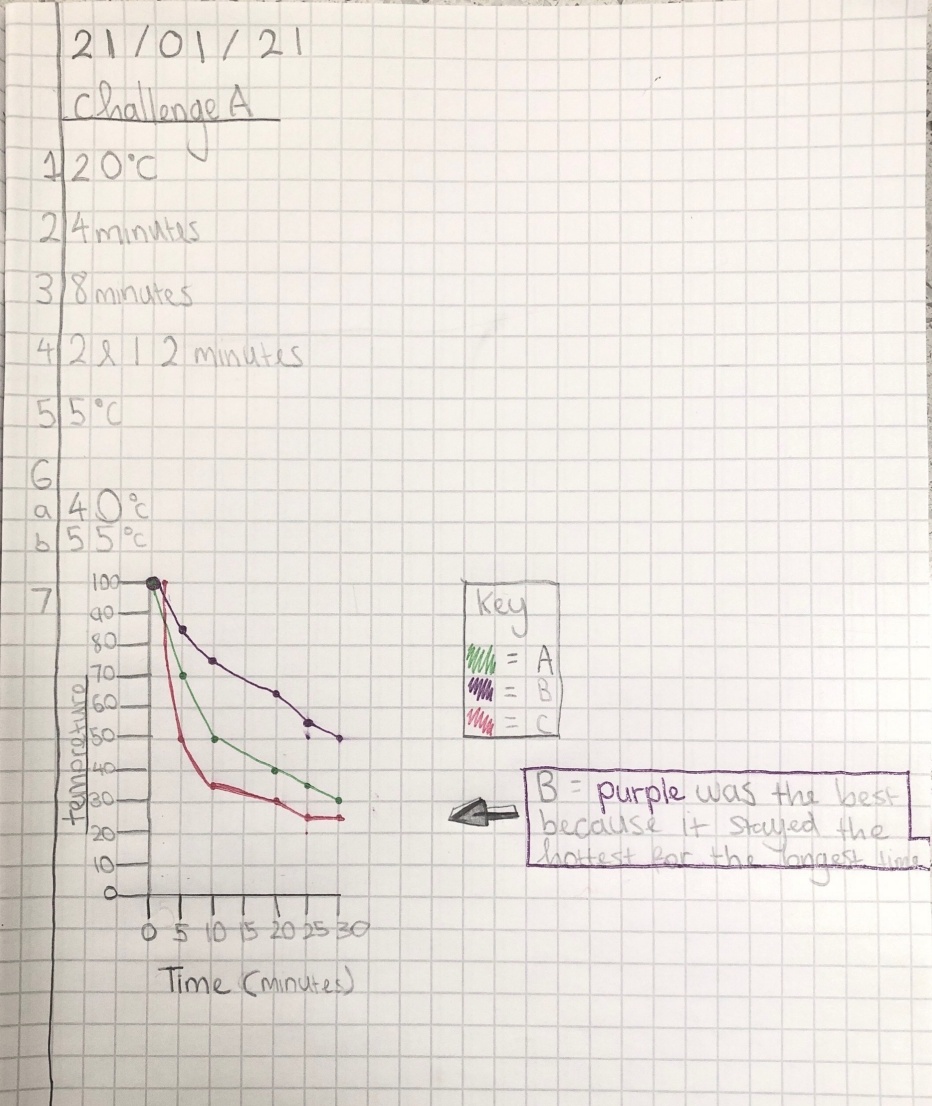 21/01/21
Challenge A
1 20°C
2 4 minutes
3 8 minutes
4 2 & 12 minutes
5 5°C
6
a 40°C
b 55°C
7
100
90
80
70
60
50
40
30
20
10
0
tempreture
0 5 10 15 20 25 30
Time (minutes)
Key
= A
= B
= C
B = purple was the best
because it stayed the
hottest for the longest time